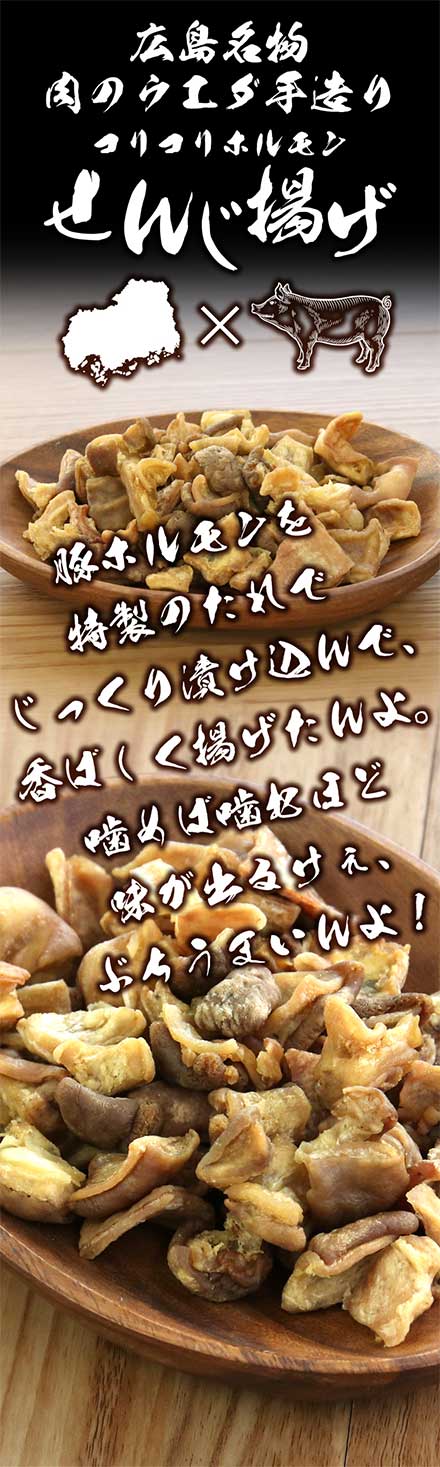 広島名物
肉のウエダ手造り
コリコリホルモン
せんじ揚げ
×
豚ホルモンを
特製のたれで
じっくり漬け込んで、
香ばしく揚げたんよ。
噛めば噛むほど
味が出るけぇ、
ぶちうまいんよ！